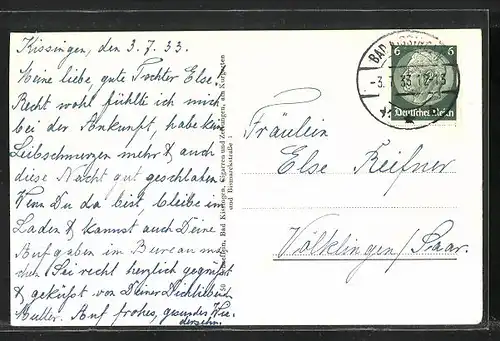 Kissingen, den 3. 7. 33.
Meine liebe, gute Tochter Else.
Recht wohl fühlte ich mich
bei der Ankunft, habe kein
Leibschmerzen mehr & auch
diese Nacht gut geschlafen.
Wenn Du da bist, bleibe im
Laden & kannst auch Deine
Aufgaben im Bureau ma-
chen. Sei recht herzlich gegrüßt
& geküßt von Deiner Dich lieb.
Mutter. Auf frohes, gesundes Wie-
dersehn.
Bad Kissingen, Cigarren und Zeitungen, am Kurgarten
und Bismarckstraße
BAD KISSINGEN
-3.7.33.12-13
6 6
Deutsches Reich
Fräulein
Else Reifner
Völklingen/Saar.